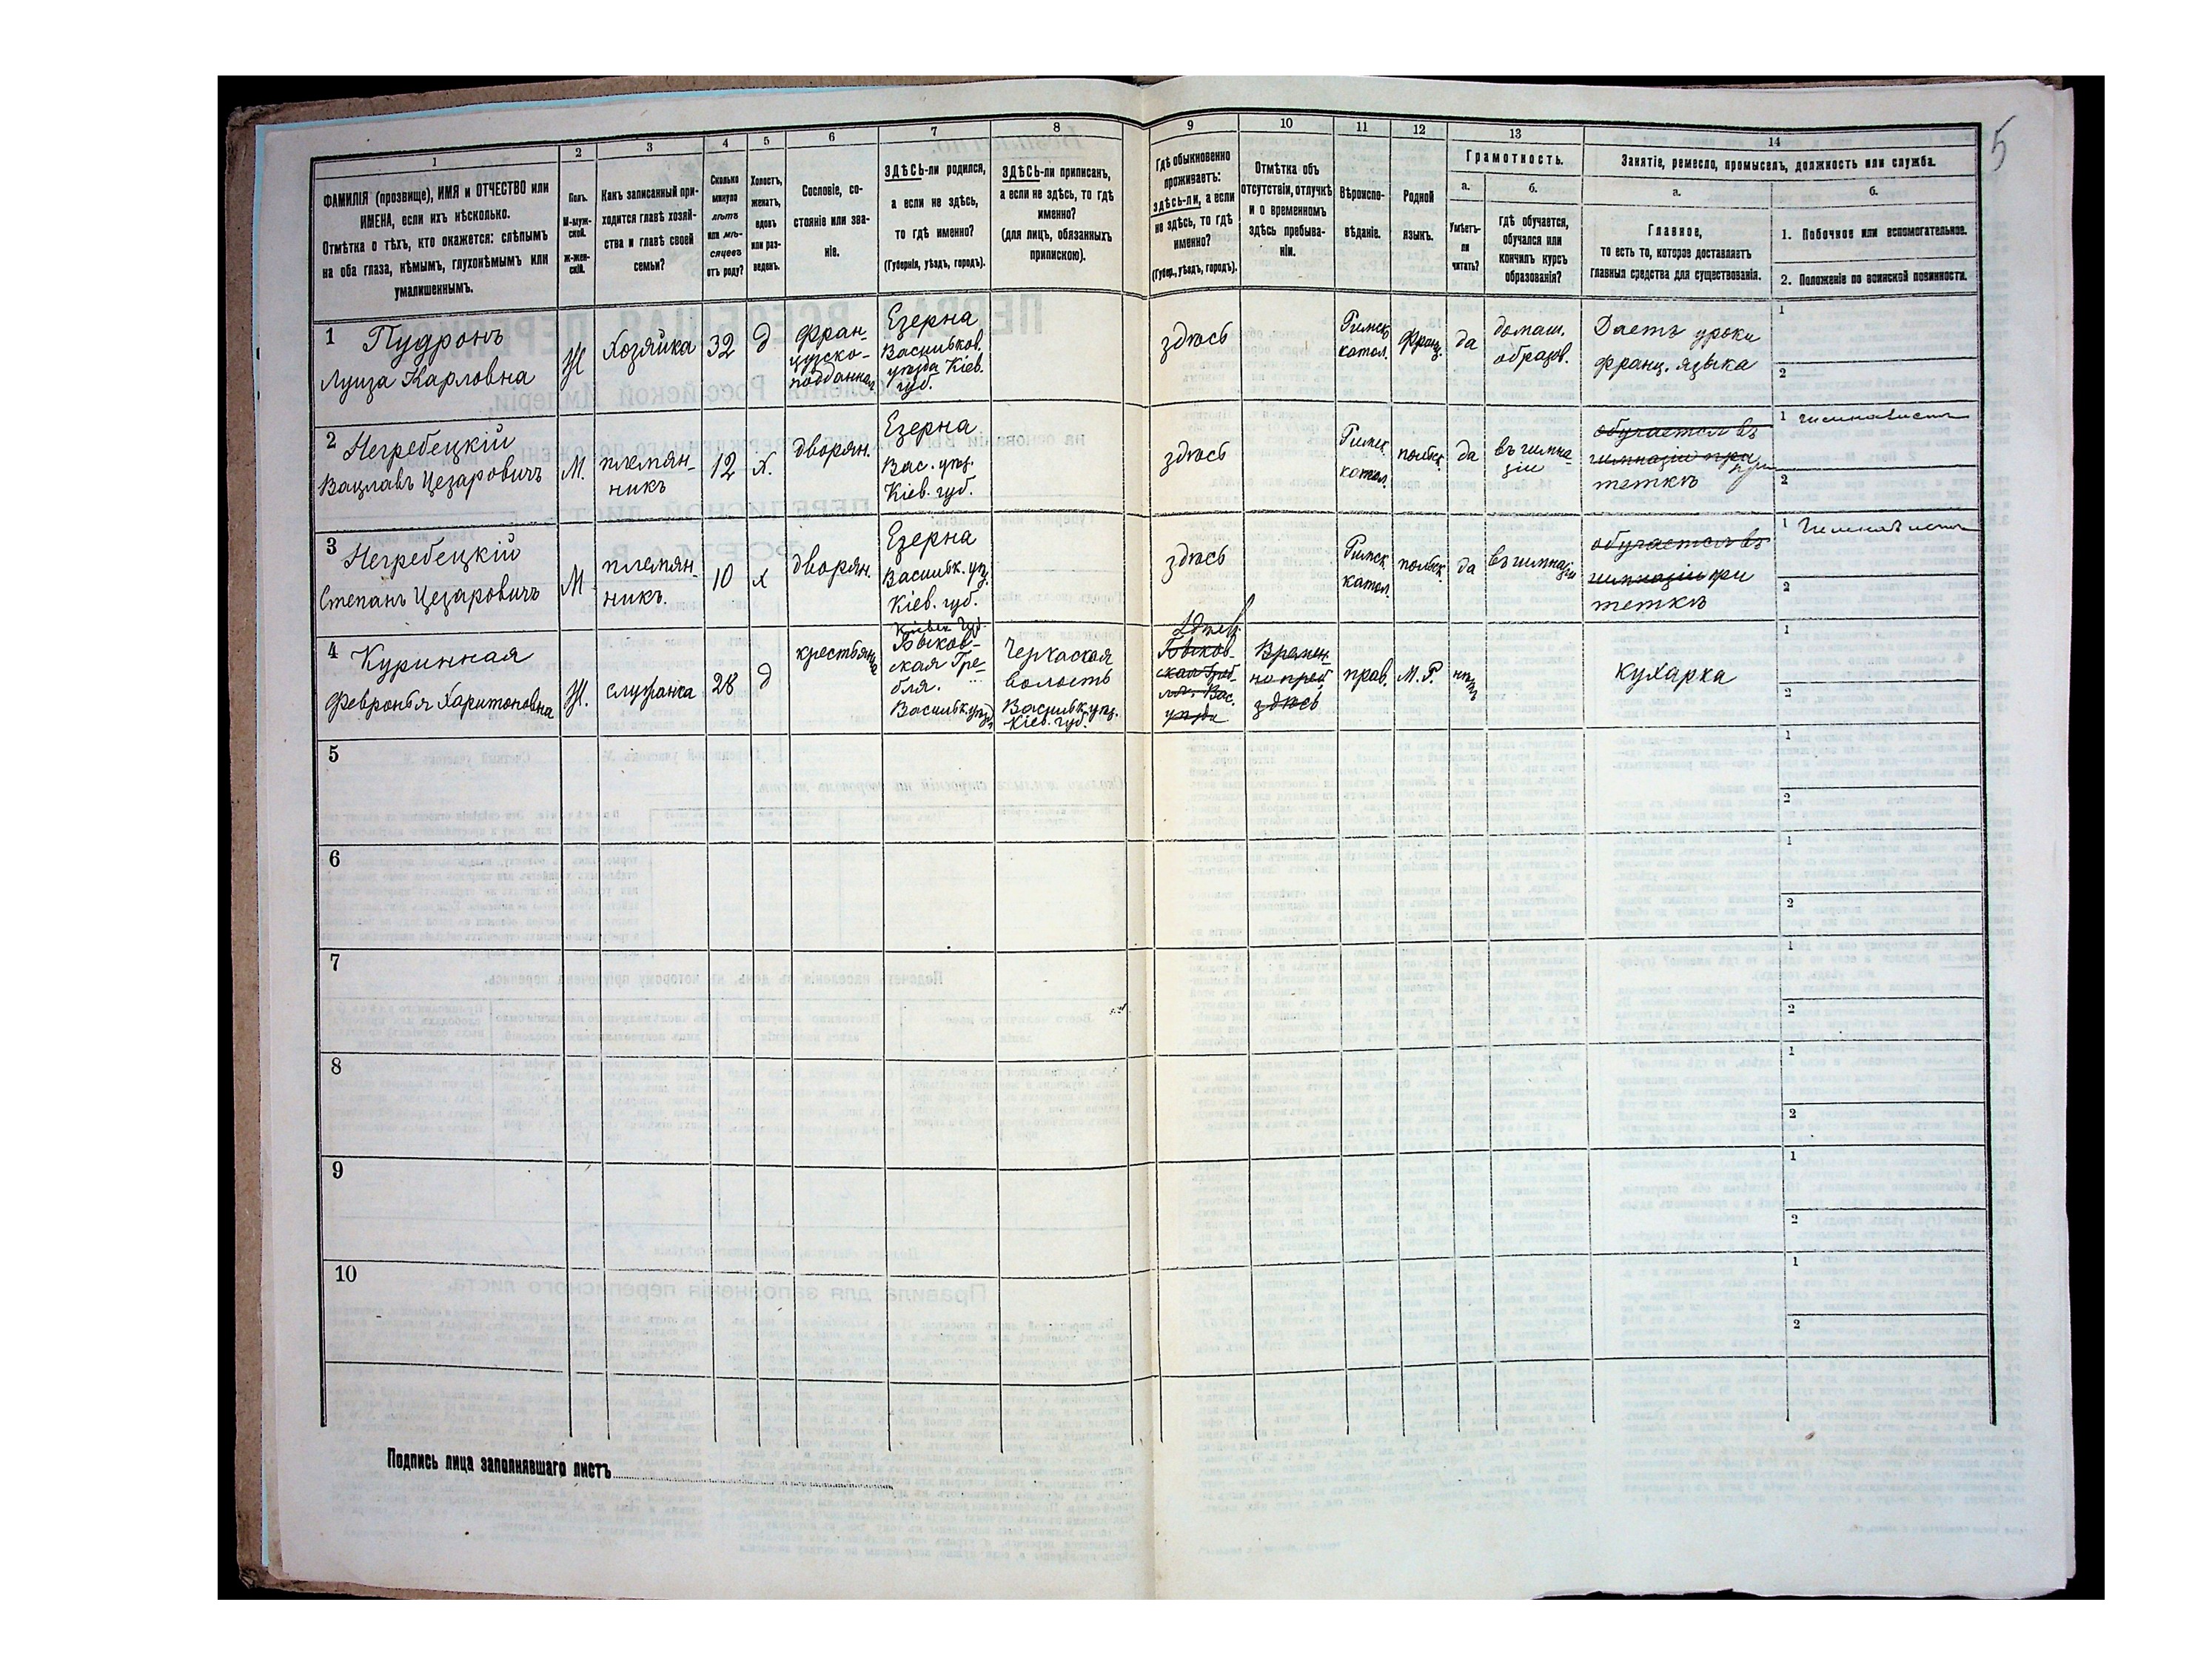 5
1
2
3
4
5
6
7
8
9
10
11
12
13
14
ФАМИЛІЯ (прозвище), ИМЯ и ОТЧЕСТВО или
ИМЕНА, если ихъ нѣсколько.
Отмѣтка о тѣхъ, кто окажется: слѣпымъ
на оба глаза, нѣмымъ, глухонѣмымъ или
умалишеннымъ.
Полъ.
М-муж-
ской.
Ж-жен-
скій.
Какъ записанный при-
ходится главѣ хозяй-
ства и главѣ своей
семьи?
Сколько
минуло
лѣтъ
или мѣ-
сяцевъ
отъ роду?
Холостъ,
женатъ,
вдовъ
или раз-
веденъ.
Сословіе, со-
стояніе или зва-
ніе.
ЗДѢСЬ-ли родился,
а если не здѣсь,
то гдѣ именно?
(Губернія, уѣздъ, городъ).
ЗДѢСЬ-ли приписанъ,
а если не здѣсь, то гдѣ
именно?
(для лицъ, обязанныхъ
припискою).
Гдѣ обыкновенно
проживаетъ:
здѣсь-ли, а если
не здѣсь, то гдѣ
именно?
(Губер., уѣздъ, городъ).
Отмѣтка объ
отсутствіи, отлучкѣ
и о временномъ
здѣсь пребыва-
ніи.
Вѣроиспо-
вѣданіе.
Родной
языкъ.
Грамотность.
а.
Умѣетъ-
ли
читать?
б.
гдѣ обучается,
обучался или
кончилъ курсъ
образованія?
Занятіе, ремесло, промыселъ, должность или служба.
а.
Главное,
то есть то, которое доставляетъ
главныя средства для существованія.
б.
1. Побочное или вспомогательное.
2. Положеніе по воинской повинности.
1 Пудронъ
Луиза Карловна
Ж
Хозяйка
32
д
фран-
цузско-
подданная
Езерна
Васильков.
уѣзда Кіев.
губ.
здѣсь
Римск
катол.
Франц.
да
домаш.
образов.
Даетъ уроки
франц. языка
1
2
2 Негребецкій
Вацлавъ Цезаровичъ
М.
племян-
никъ
12
х.
дворян.
Езерна
Вас. уѣз.
Кіев. губ.
здѣсь
Римск.
катол.
польск.
да
въ гимна-
зіи
обучается въ
гимназіи при
при
теткѣ
1 гимназистъ
2
3 Негребецкій
Степанъ Цезаровичъ
М
племян-
никъ.
10
х
дворян.
Езерна
Васильк. уѣз.
Кіев. губ.
здѣсь
Римск.
катол.
польск.
да
въ гимназіи
обучается въ
гимназіи при
теткѣ
1 Гимназистъ
2
4 Куринная
Февронья Харитоновна
Ж.
служанка
28
д
крестьянка
Кіевск. Губ.
Быков-
ская Гре-
бля.
Васильк. уѣзд.
Черкаская
волость
Васильк. уѣз.
Кіев. губ.
Здѣсь
Быков-
ская Греб-
ля Вас.
уѣзда
Времен-
но преб.
здѣсь
прав.
М. Р.
нѣтъ
кухарка
1
2
5
1
2
6
1
2
7
1
2
8
1
2
9
1
2
10
1
2
Подпись лица заполнявшаго листъ